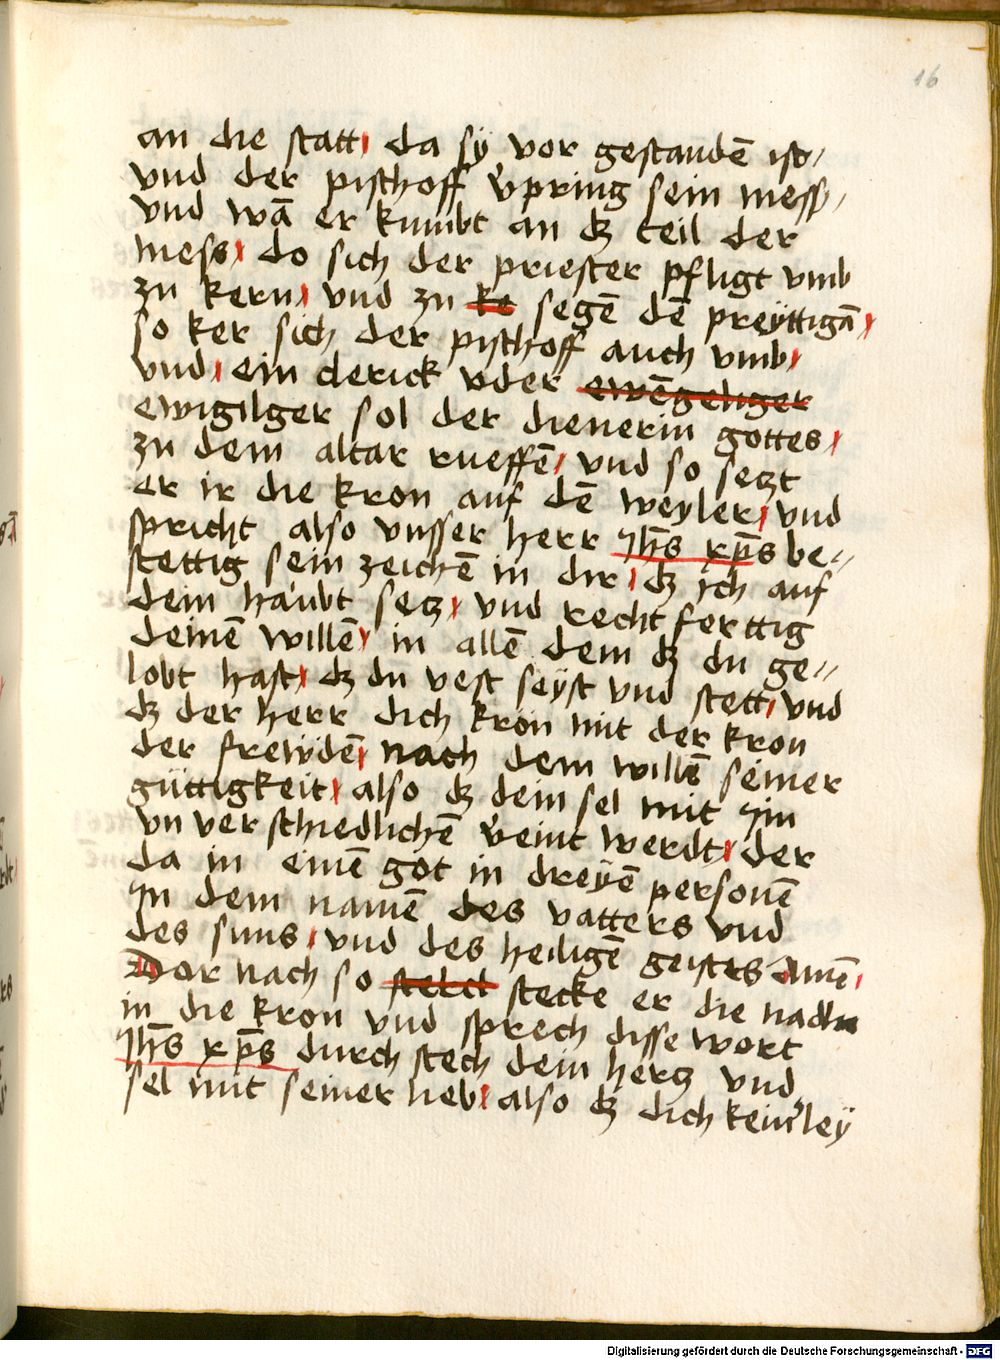 16
an die statt, da sÿ vor gestandē ist/
vnd der pischoff v̾pring sein mess/
vnd wā er kumbt an dʒ teil der
mess, do sich der priester pfligt vmb
zu kern, vnd zu ke segē dē preÿttigā,
so ker sich der pischoff auch vmb,
vnd, ein derick vder ewēgeliger
ewigilger sol der dienerin gottes,
zu dem altar rueffē, vnd so setzt
er ir die kron auf dē weyler, vnd
spricht also vnsser herr Jh̄s xp̄s be⸗
stettig sein zeichē in dir, dʒ ich auf
dein haubt setz, vnd rechtferttig
deinē willē, in allē dem dʒ du ge⸗
lobt hast, dʒ du vest seÿst vnd stett, vnd
dʒ der herr dich kron mit der kron
der frewdē, nach dem willē seiner
güttigkeit, also dʒ dein sel mit Jm
vnverschiedlichē v̾eint werdt, der
da in einē got in dreÿē personē
Jn dem namē des vatters vnd
des suns, vnd des heiligē geistes Amē,
Dor nach so stelct stecke er die nadln
in die kron vnd sprech disse wort
Jh̄s xp̄s durch stech dein hertz vnd
sel mit seiner lieb, also dʒ dich kein̾leÿ
Digitalisierung gefördert durch die Deutsche Forschungsgemeinschaft - DFG